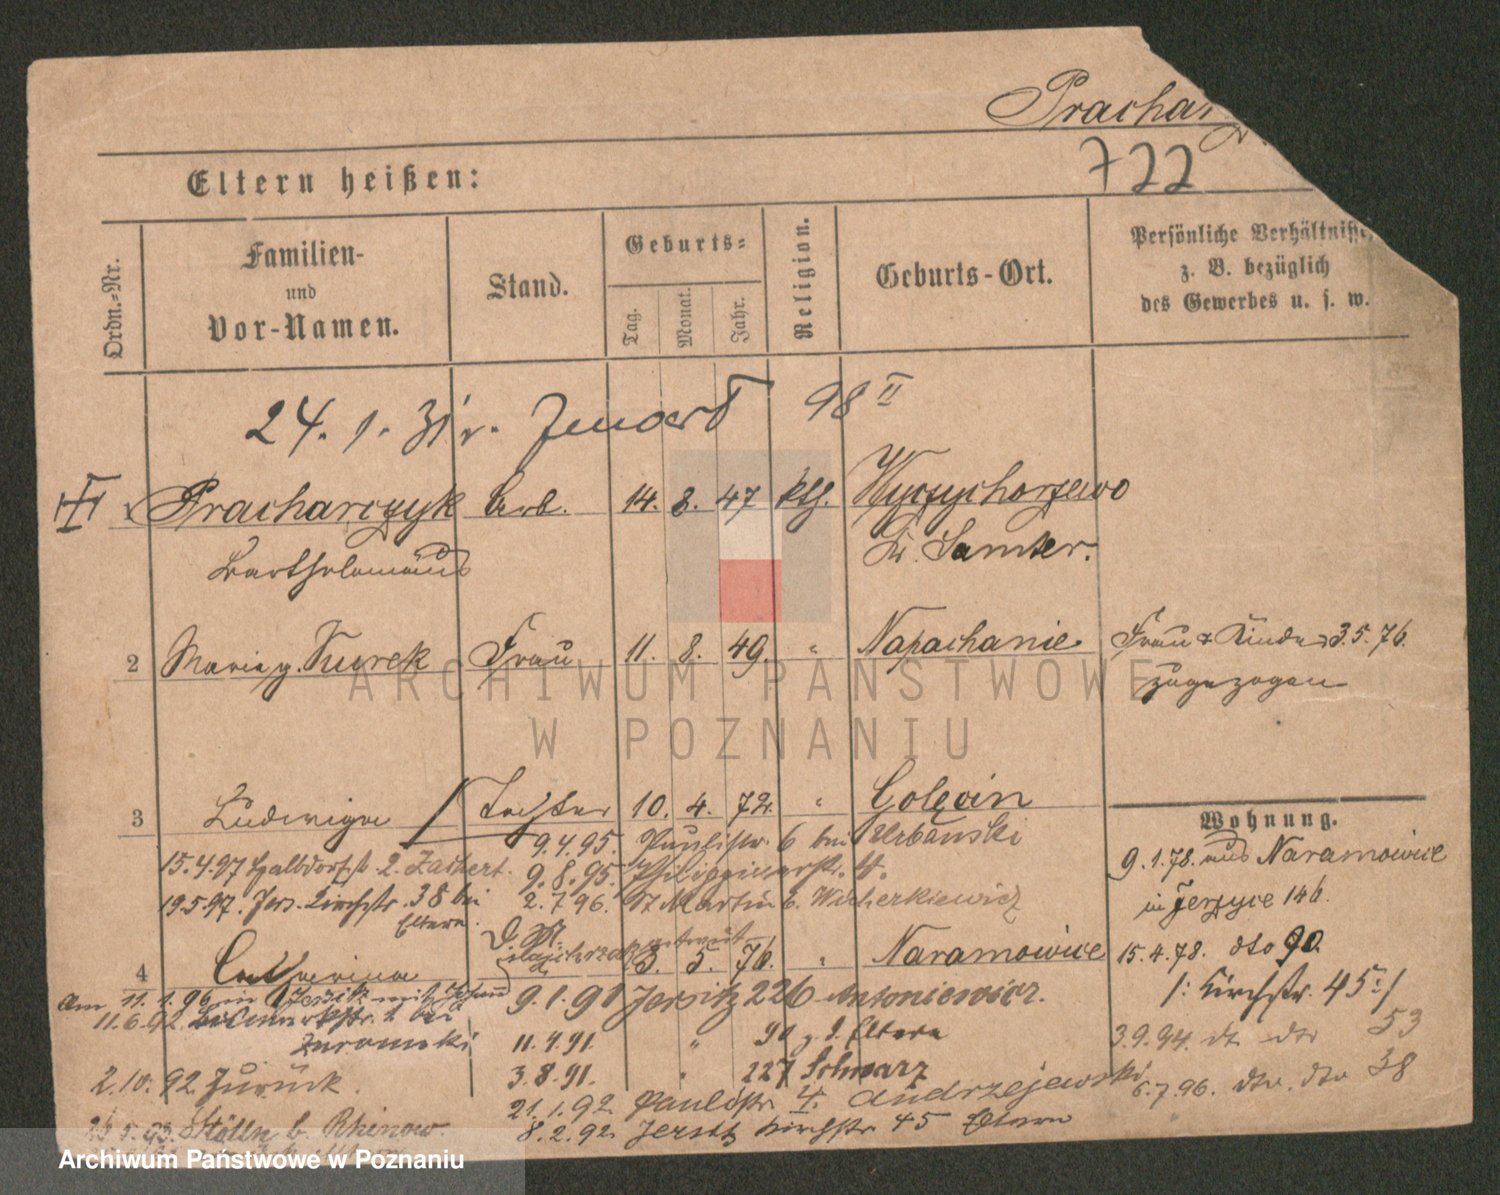 Prachar
722
Eltern heißen:
Ordn.-Nr.
Familien-
und
Vor-Namen.
Stand.
Geburts-
Tag.
Monat.
Jahr.
Religion.
Geburts-Ort.
Persönliche Verhältnisse,
z. B. bezüglich
des Gewerbes u. s. w.
24. 1. 98 II
Pracharczyk Arb. 14. 8. 47 kth. Wyczychorzewo
Bartholomäus Kr. Samter.
2 Maria g. Kurek Frau 11. 8. 49. " Napachanie Frau & Kinder 3.5.76.
zugezogen
3 Ludwiga Tochter 10. 4. 72. " Golęcin
Wohnung.
9.4.95. Paulistr. 6 bei Urbanski
9.1.78. aus Naramowice
15.4.97 Halbdorfst. 2. Zachert. 9.8.95.
19.5.97. Jers. Kirchstr. 38 bei 2.7.96. St Martin
Eltern.
in Jerzyce 146.
4 Catharina 3. 5. 76. " Naramowice 15.4.78. dto 90.
Am 11.1.96 in Jersitz mit
9.1.91 Jersitz 226 Antoniewicz.
/: Kirchstr. 45 :/
11.6.92. Bismarkstr. 1 bei
11.4.91. " 90 z. d. Eltern
3.9.94. dt dto 53
3.8.91. " 227 Schwarz
2.10.92 Zurück.
21.1.92. Paulistr. 4. Andrzejewski
6.7.96. dto. dto 38
8.2.92. Jersitz Kirchstr. 45 Eltern
b. Rhinow.
ARCHIWUM PAŃSTWOWE
W POZNANIU
Archiwum Państwowe w Poznaniu